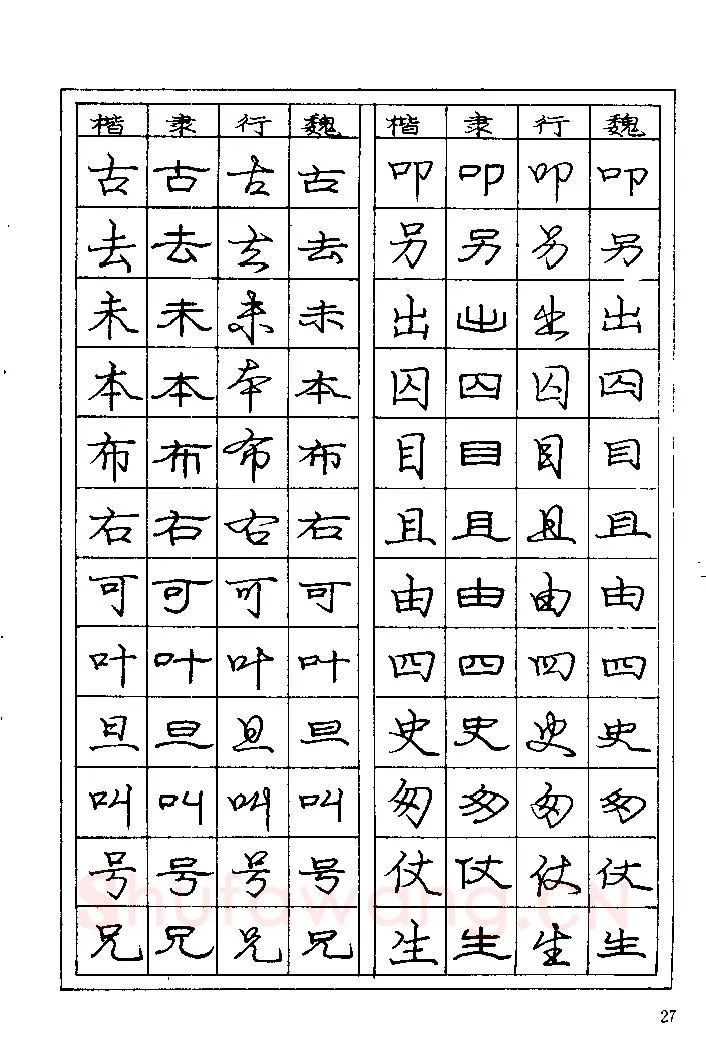 楷 隶 行 魏 楷 隶 行 魏
古 古 古 古 叩 叩 叩 叩
去 去 去 去 另 另 另 另
未 未 未 未 出 出 出 出
本 本 本 本 囚 囚 囚 囚
布 布 布 布 目 目 目 目
右 右 右 右 且 且 且 且
可 可 可 可 由 由 由 由
叶 叶 叶 叶 四 四 四 四
旦 旦 旦 旦 史 史 史 史
叫 叫 叫 叫 匆 匆 匆 匆
号 号 号 号 仗 仗 仗 仗
Shufawang.CN
兄 兄 兄 兄 生 生 生 生
27